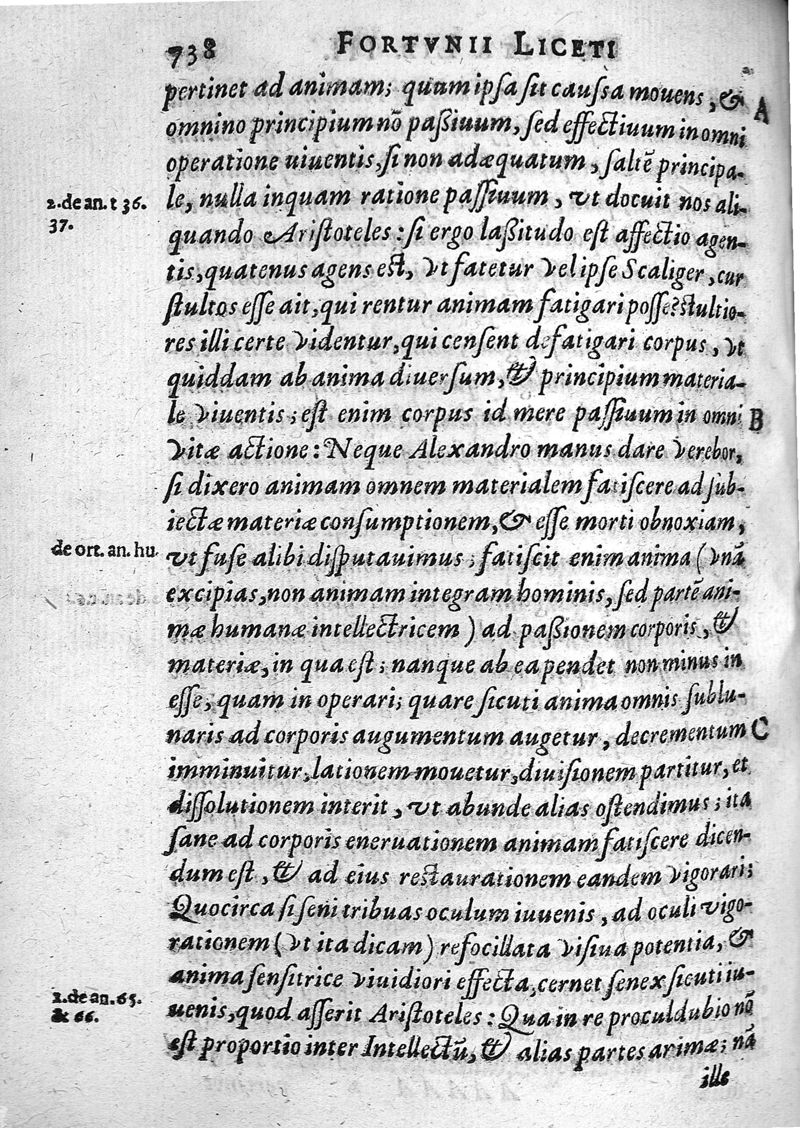 738 FORTVNII LICETI
pertinet ad animam; quum ipſa ſit cauſſa mouens, &
A
omnino principium nõ paßiuum, ſed effectiuum in omni
operatione uiuentis, ſi non adæquatum, ſaltẽ principa-
2. de an. t 36.
37.
le, nulla inquam ratione paſſiuum, vt docuit nos ali-
quando Ariſtoteles: ſi ergo laßitudo eſt affectio agen-
tis, quatenus agens eſt, vt fatetur vel ipſe Scaliger, cur
ſtultos eſſe ait, qui rentur animam fatigari poſſe? ſtultio-
res illi certe videntur, qui cenſent defatigari corpus, vt
quiddam ab anima diuerſum, & principium materia-
le viuentis; eſt enim corpus id mere paſſiuum in omni
B
vitæ actione: Neque Alexandro manus dare verebor,
ſi dixero animam omnem materialem fatiſcere ad ſub-
iectæ materiæ conſumptionem, & eſſe morti obnoxiam,
de ort. an. hu.
vt fuſe alibi diſputauimus; fatiſcit enim anima (vnã
excipias, non animam integram hominis, ſed partẽ ani-
mæ humanæ intellectricem) ad paßionem corporis, &
materiæ, in qua eſt; nanque ab ea pendet non minus in
eſſe, quam in operari; quare ſicuti anima omnis ſublu-
naris ad corporis augumentum augetur, decrementum
C
imminuitur, lationem mouetur, diuiſionem partitur, et
diſſolutionem interit, vt abunde alias oſtendimus; ita
ſane ad corporis eneruationem animam fatiſcere dicen-
dum eſt, & ad eius reſtaurationem eandem vigorari;
Quocirca ſi ſeni tribuas oculum iuuenis, ad oculi vigo-
rationem (vt ita dicam) refocillata viſiua potentia, &
anima ſenſitrice viuidiori effecta, cernet ſenex ſicuti iu-
2. de an. 65.
& 66.
uenis, quod aſſerit Ariſtoteles: Qua in re proculdubio nõ
eſt proportio inter Intellectũ, & alias partes animæ; nã
ille